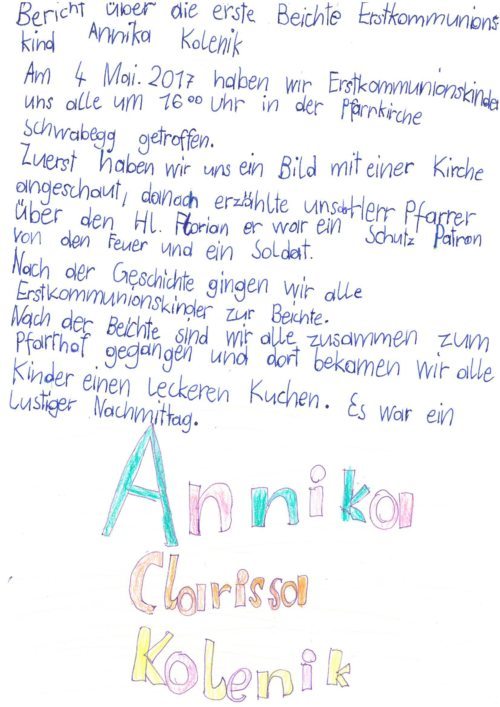 Bericht über die erste Beichte Erstkommunions
kind Annika Kolenik
Am 4 Mai. 2017 haben wir Erstkommunionskinder
uns alle um 16⁰⁰ Uhr in der Pfarrkirche
Schwabegg getroffen.
Zuerst haben wir uns ein Bild mit einer Kirche
angeschaut, danach erzählte uns der Herr Pfarrer
über den Hl. Florian er war ein Schutz Patron
von den Feuer und ein Soldat.
Nach der Geschichte gingen wir alle
Erstkommunionskinder zur Beichte.
Nach der Beichte sind wir alle zusammen zum
Pfarrhof gegangen und dort bekamen wir alle
Kinder einen leckeren Kuchen. Es war ein
lustiger Nachmittag.
Annika
Clarissa
Kolenik